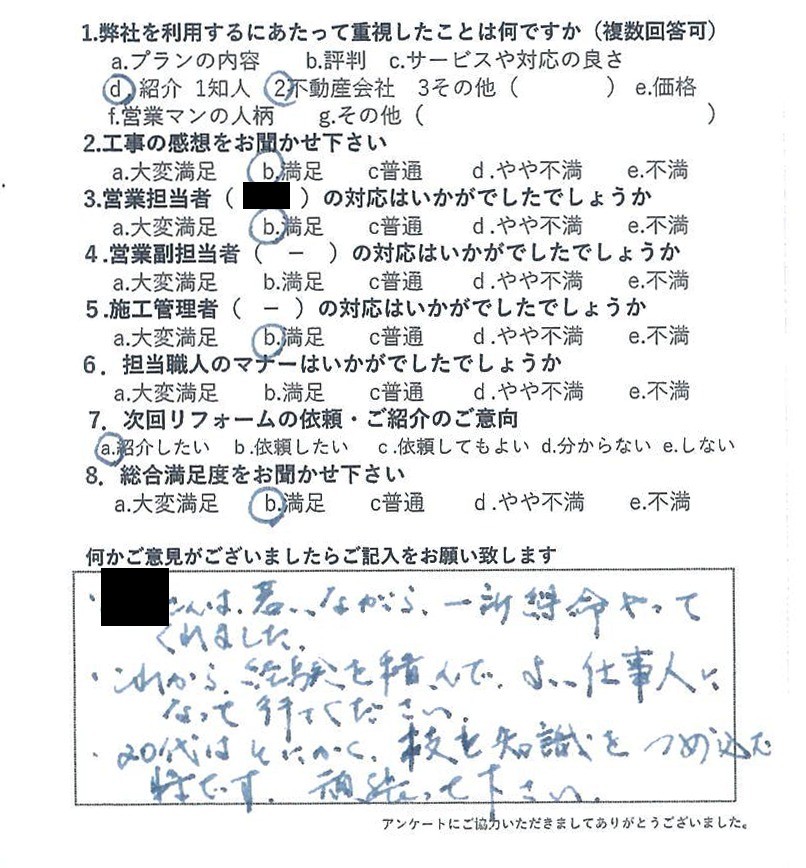 1.弊社を利用するにあたって重視したことは何ですか（複数回答可）
a.プランの内容 b.評判 c.サービスや対応の良さ
d.紹介 1知人 2不動産会社 3その他（ ） e.価格
f.営業マンの人柄 g.その他（ ）
2.工事の感想をお聞かせ下さい
a.大変満足 b.満足 c普通 d.やや不満 e.不満
3.営業担当者（ ）の対応はいかがでしたでしょうか
a.大変満足 b.満足 c普通 d.やや不満 e.不満
4.営業副担当者（ － ）の対応はいかがでしたでしょうか
a.大変満足 b.満足 c普通 d.やや不満 e.不満
5.施工管理者（ － ）の対応はいかがでしたでしょうか
a.大変満足 b.満足 c普通 d.やや不満 e.不満
6．担当職人のマナーはいかがでしたでしょうか
a.大変満足 b.満足 c普通 d.やや不満 e.不満
7．次回リフォームの依頼・ご紹介のご意向
a.紹介したい b.依頼したい c.依頼してもよい d.分からない e.しない
8．総合満足度をお聞かせ下さい
a.大変満足 b.満足 c普通 d.やや不満 e.不満
何かご意見がございましたらご記入をお願い致します
・ さんは、若いながら、一所懸命やって
くれました。
・これから、経験を積んで、よい仕事人に
なって行てください。
・20代はとにかく、技と知識をつめ込む
時です。頑張って下さい。
アンケートにご協力いただきましてありがとうございました。